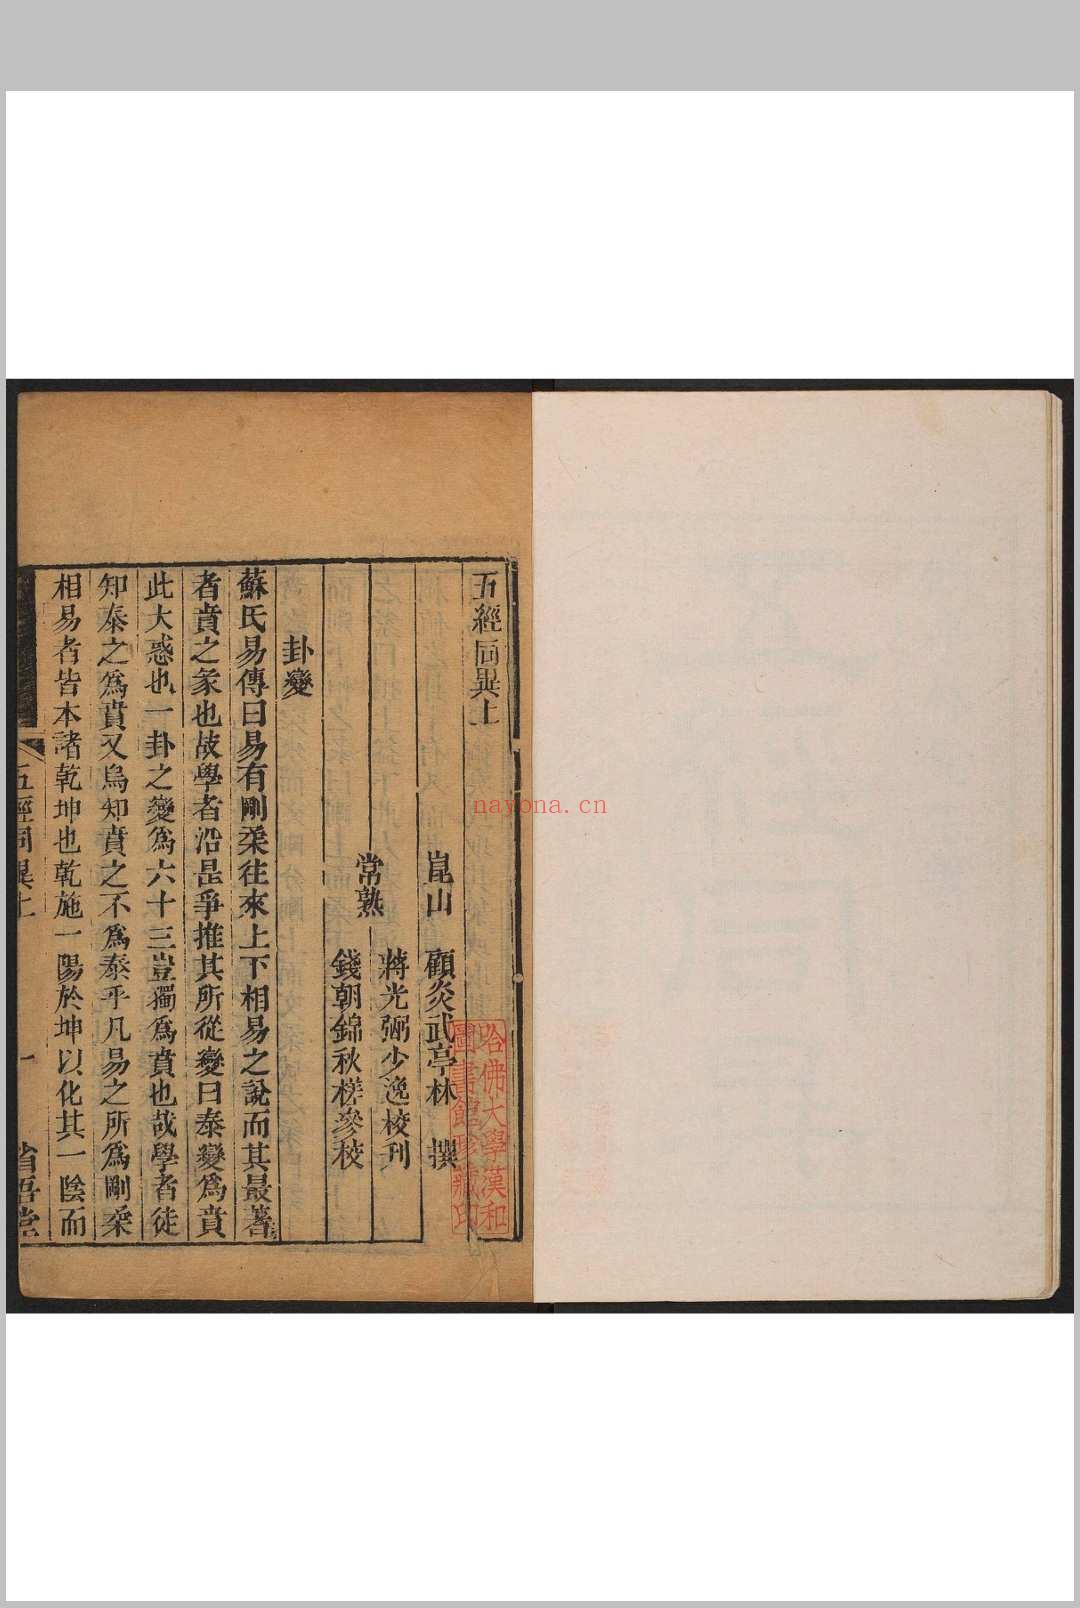 五經同異上
崑山　顧炎武亭林　撰
常熟
蔣光弼少逸校刊
錢朝錦秋槎參校
卦變
蘇氏易傳曰易有剛柔往來上下相易之說而其最著
者賁之彖也故學者沿是爭推其所從變曰泰變爲賁
此大惑也一卦之變爲六十三豈獨爲賁也哉學者徒
知泰之爲賁又烏知賁之不爲泰乎凡易之所爲剛柔
相易者皆本諸乾坤也乾施一陽於坤以化其一陰而
五經同異上
一
省吾堂
哈佛大學漢和
圖書館珍藏印
nayona.cn